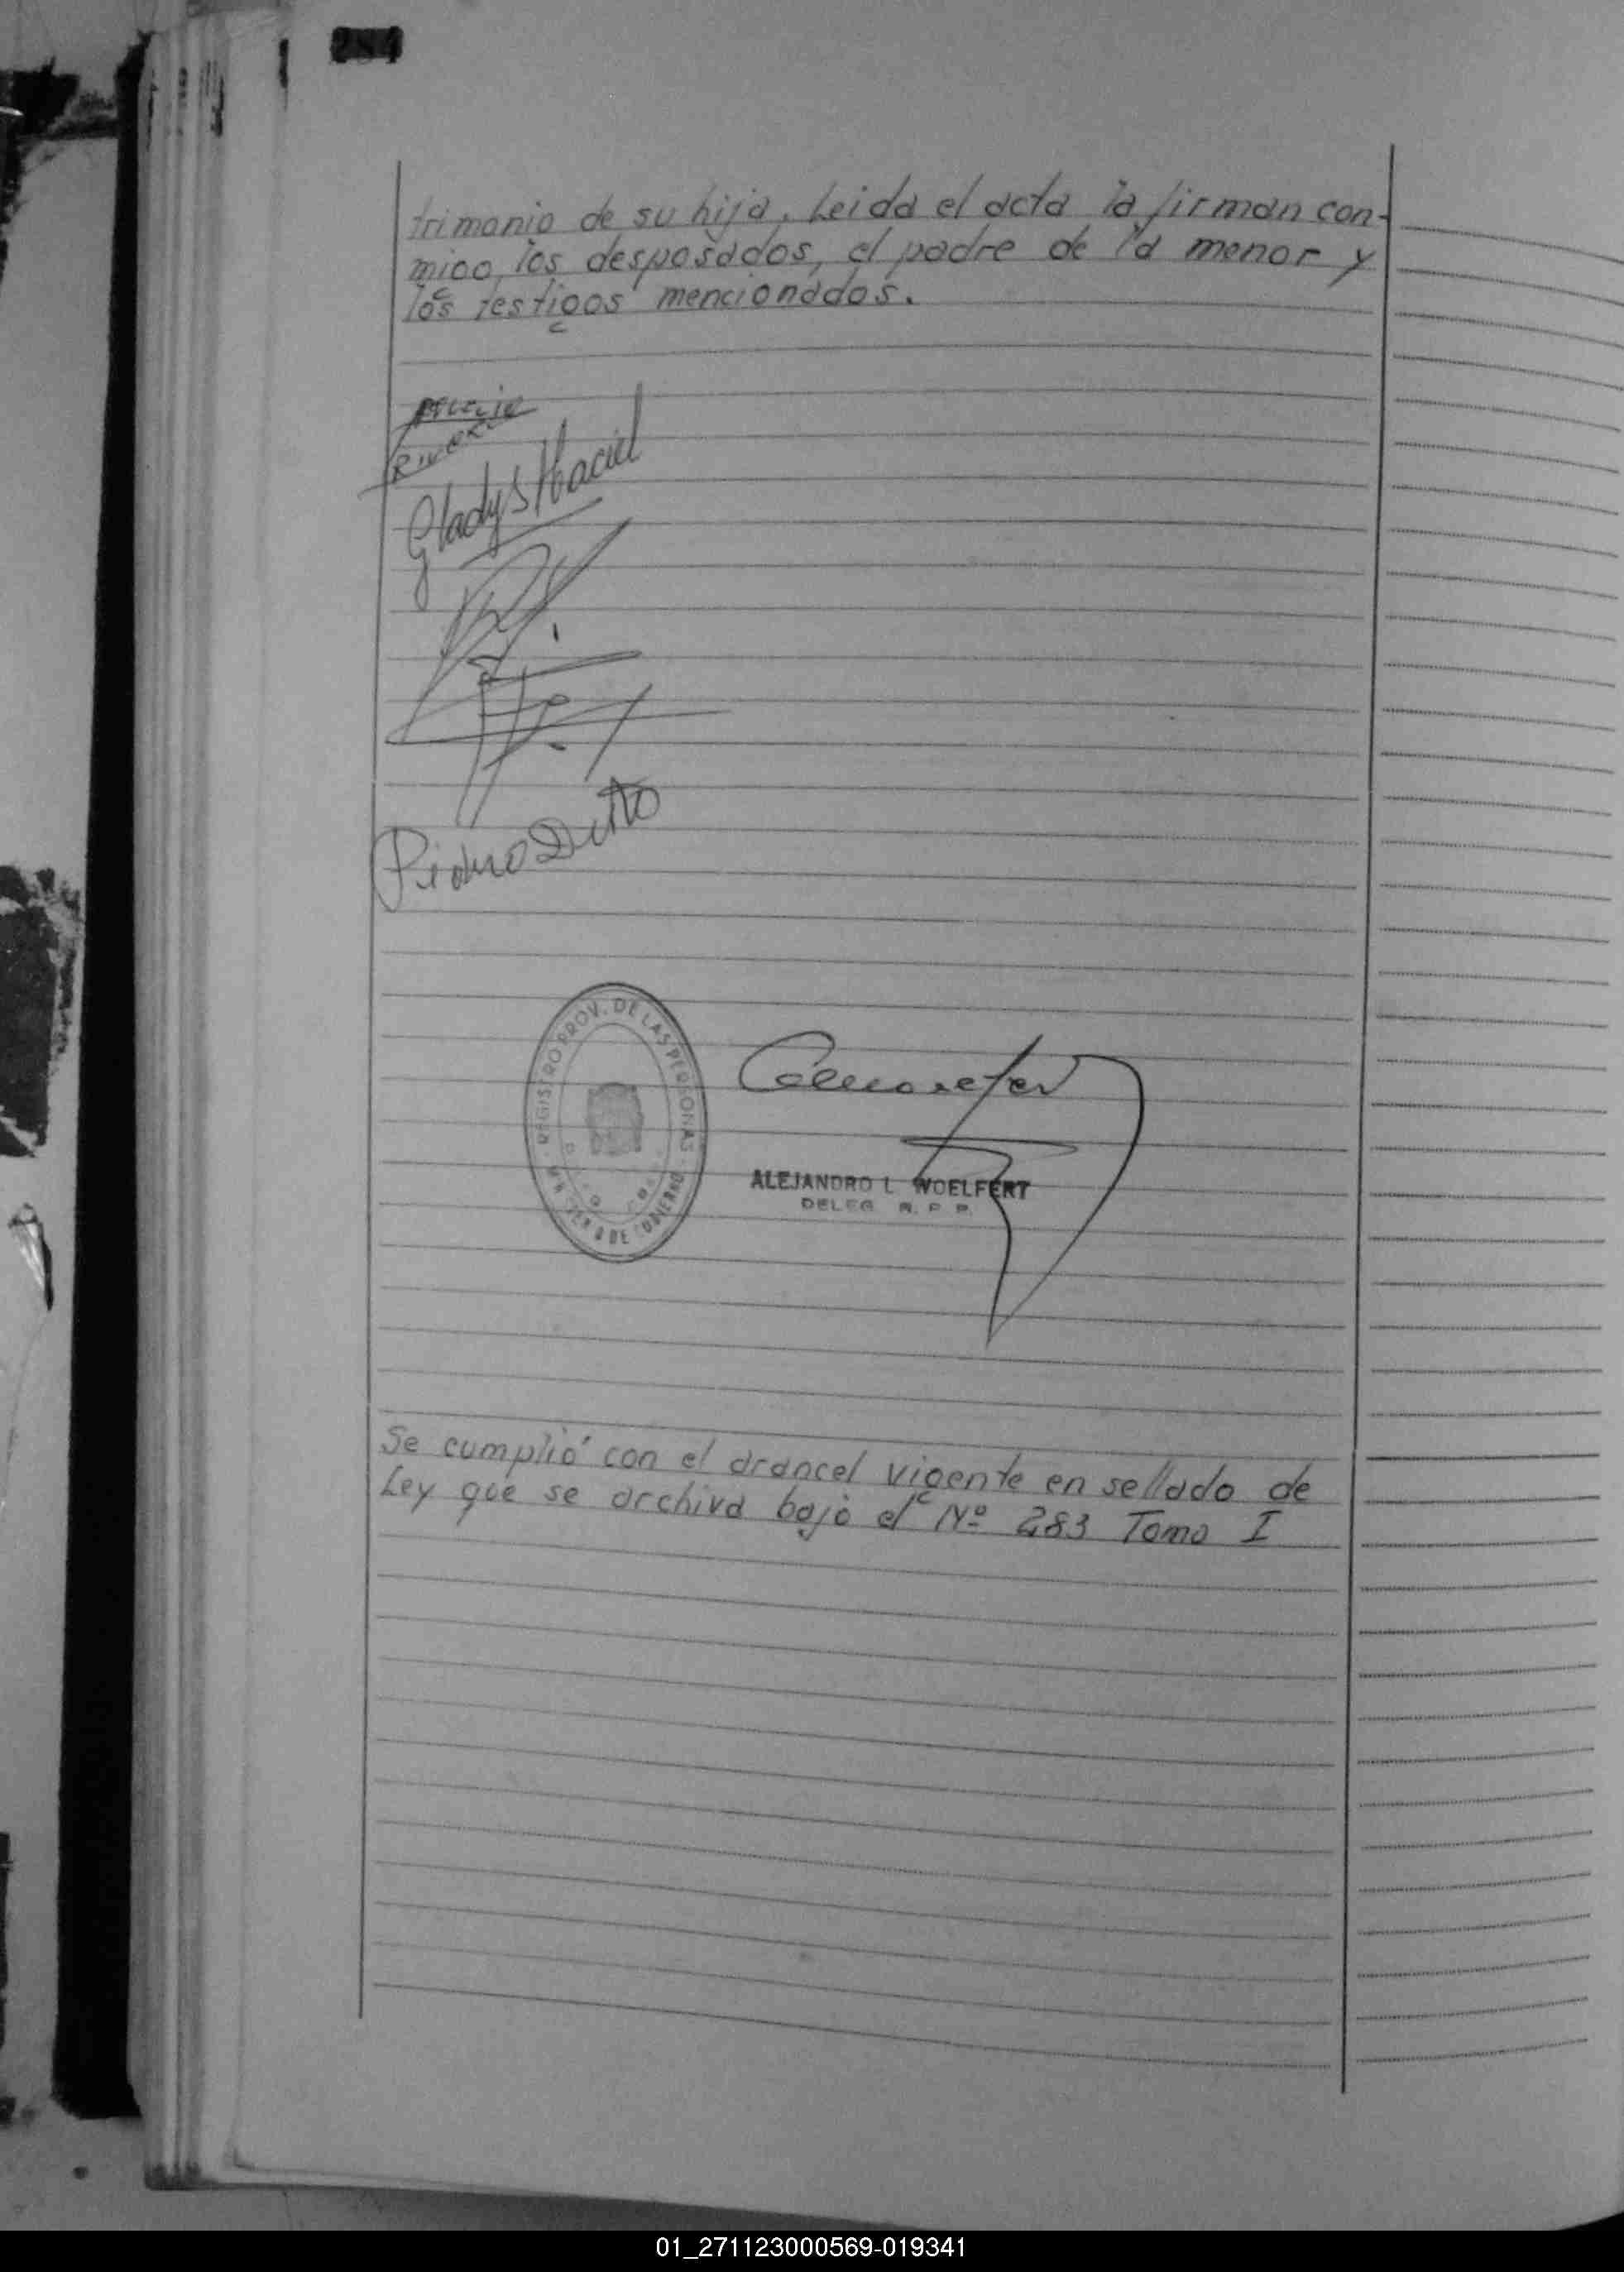 284
trimonio de su hija. Leida el acta la firman con-
migo, los desposados, el padre de la menor y
los testigos mencionados.
Gladys Maciel
REGISTRO PROV. DE LAS PERSONAS
MINISTERIO DE GOBIERNO
ALEJANDRO L. WOELFERT
DELEG. R. P. P.
Se cumplió con el arancel vigente en sellado de
Ley que se archiva bajo el Nº 283 Tomo I
01_271123000569-019341